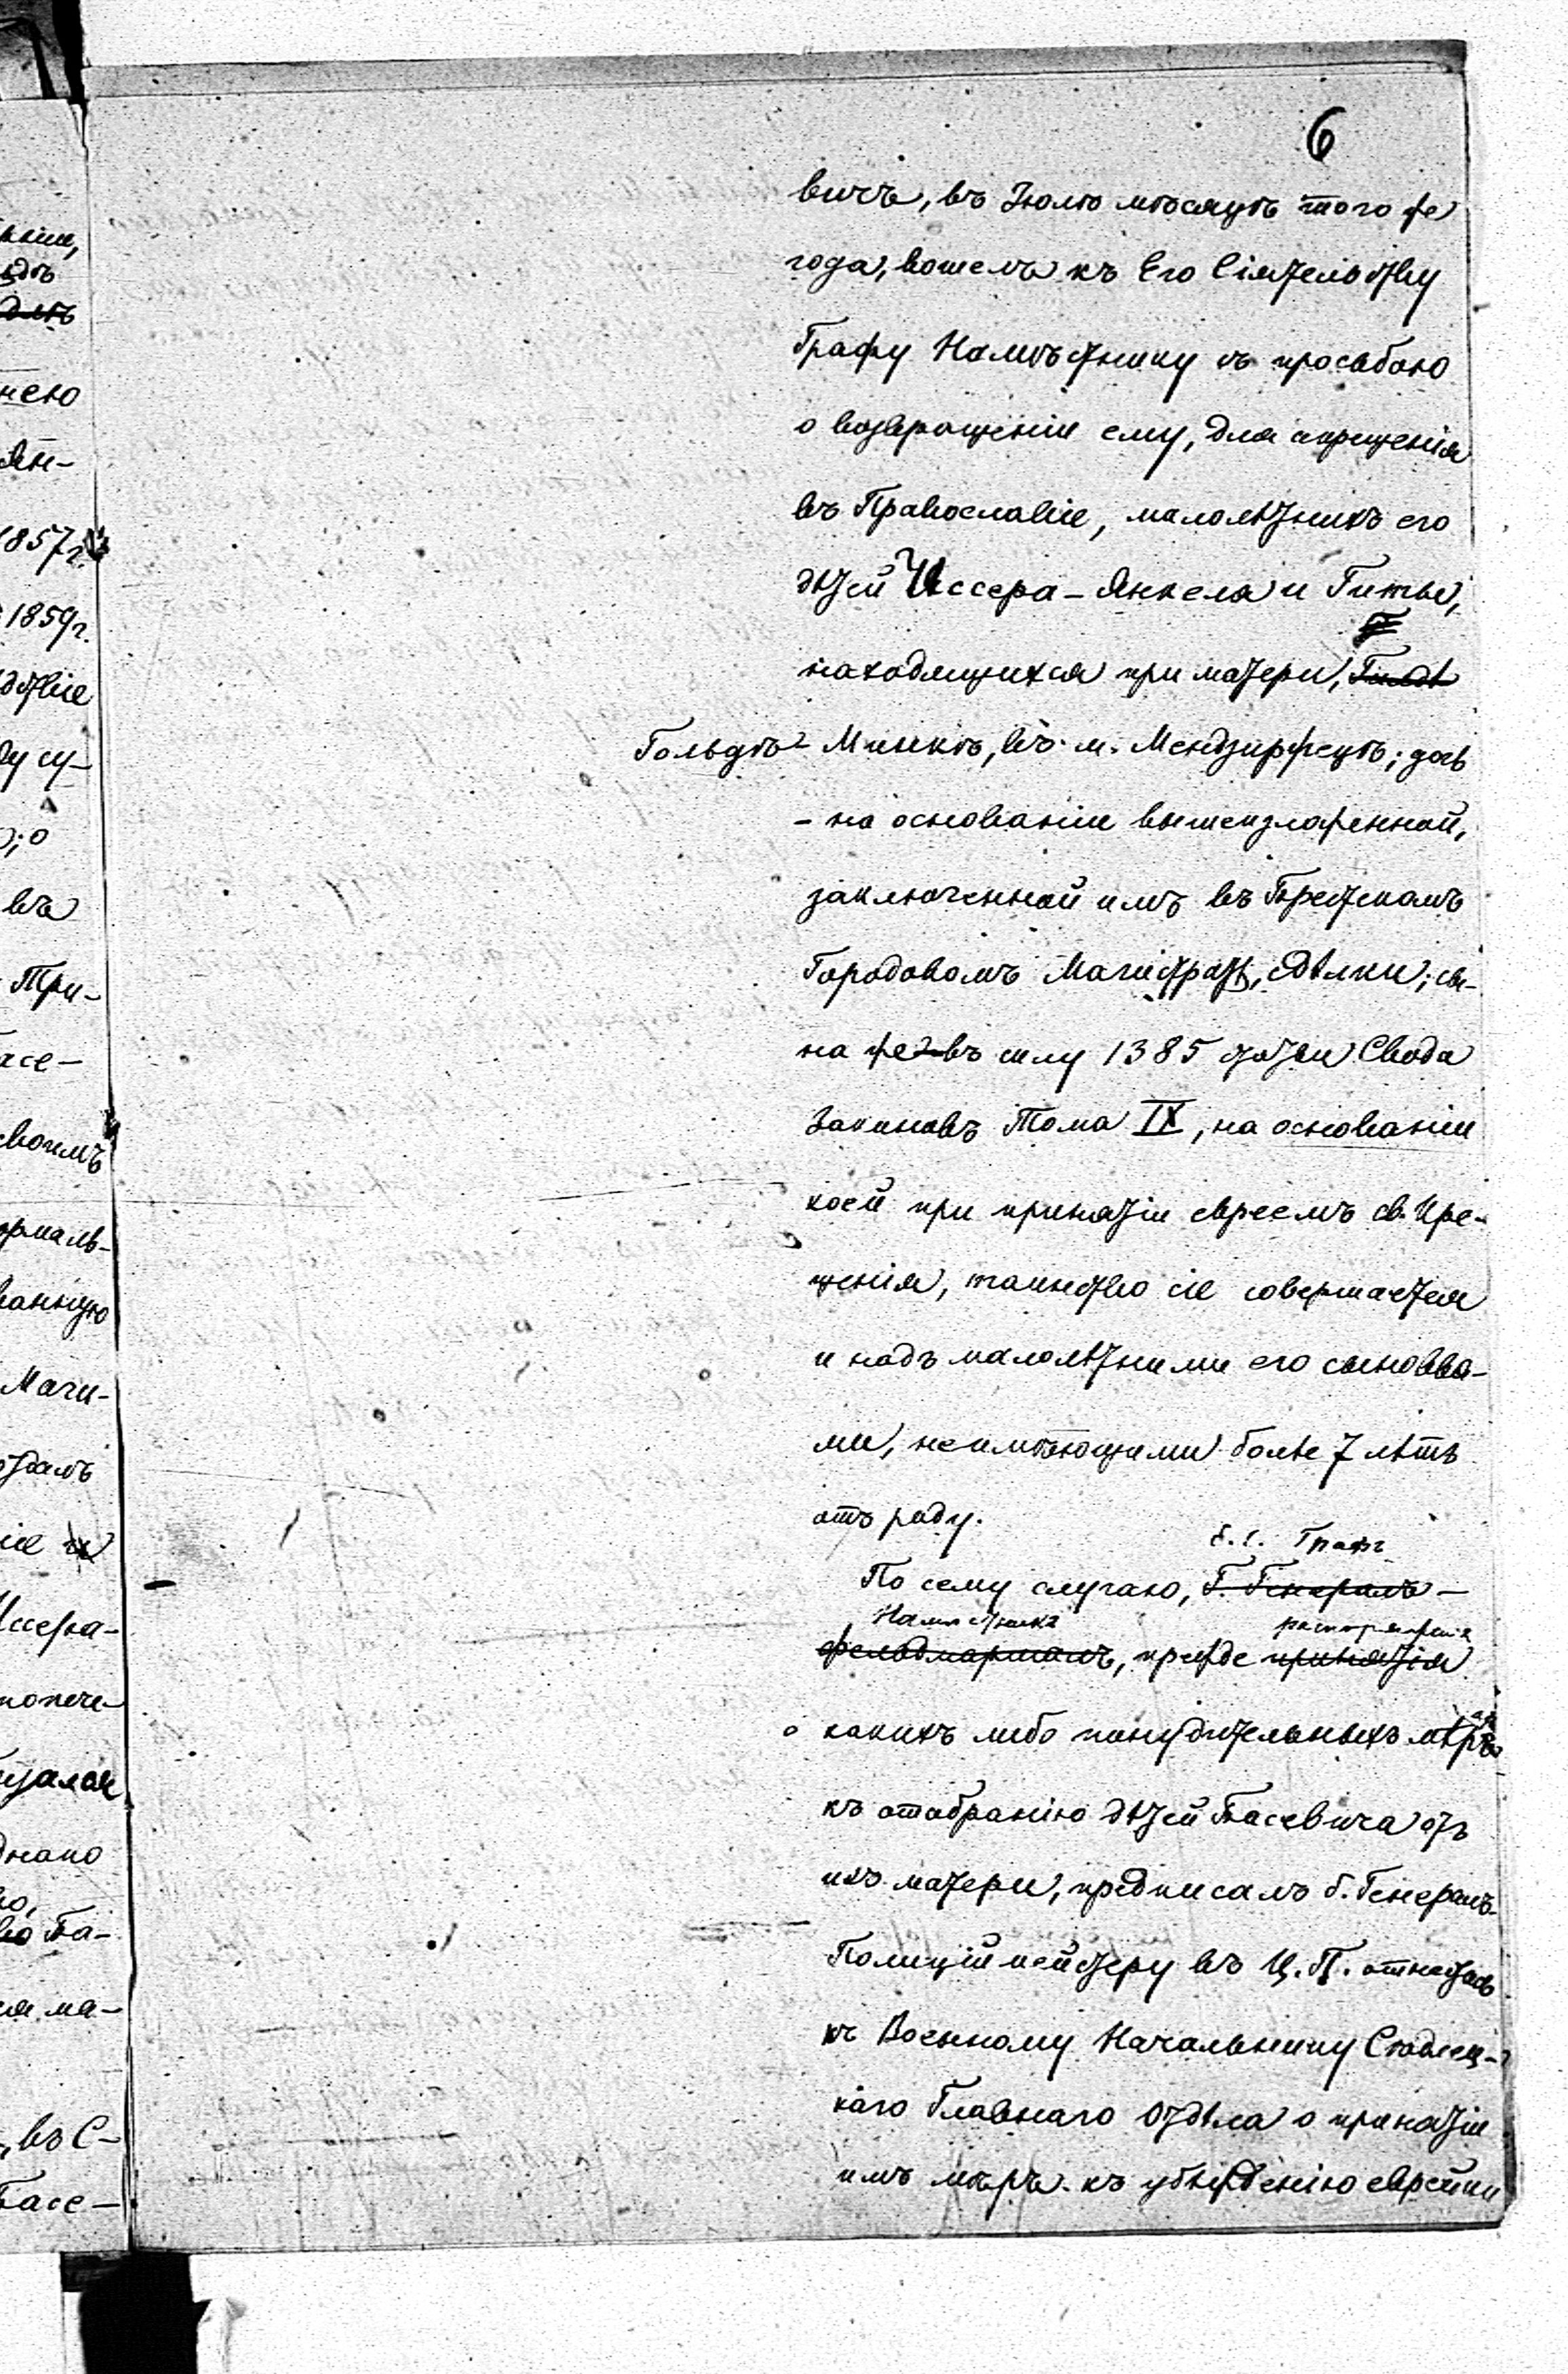 6
вичъ, въ Іюлѣ мѣсяцѣ того же
года, вошелъ къ Его Сіятельству
Графу Намѣстнику съ просьбою
о возвращеніи ему, для крещенія
въ Православіе, малолѣтнихъ его
дѣтей Иссера-Янкеля и Гитлы,
находящихся при матери, 
Гольдѣ-Минкѣ, въ м. Мендзиржецѣ; дочь
- на основаніи вышеизложенной,
заключенной имъ въ Брестскомъ
Городовомъ Магистратѣ, сдѣлки; сы-
на же въ силу 1385 статьи Свода
Законовъ Тома IX, на основаніи
коей при принятіи евреемъ св. Кре-
щенія, таинство сіе совершается
и надъ малолѣтними его сыновья-
ми, неимѣющими болѣе 7 лѣтъ
отъ роду.
Е. С. Графъ
По сему случаю, Г. Генералъ-
Намѣстникъ распоряженія
фельдмаршалъ, прежде принятія
о какихъ либо понудительныхъ мѣрахъ
къ отобранію дѣтей Басевича отъ
ихъ матери, предписалъ б. Генералъ-
Полиціймейстеру въ Ц. П. отнестись
къ Военному Начальнику Сѣдлец-
каго Главнаго Отдѣла о принятіи
имъ мѣръ къ убѣжденію еврейки
кіи,
нею
Ян-
1857г.
1859г.
ду су-
; о
въ
Три-
асе-
своимъ
ормаль-
ванную
Маги-
Иссера-
попече-
днако
Ба-
ма-
въ С-
Басе-